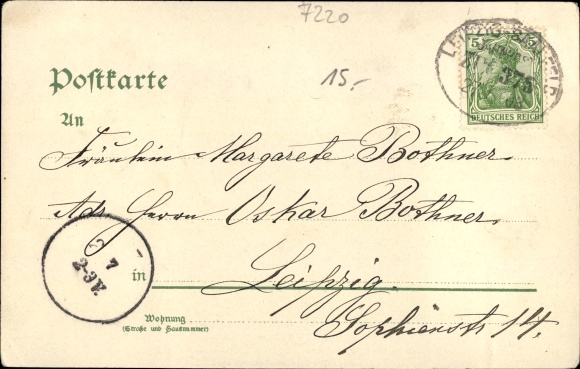 7220
15.-
5 5
DEUTSCHES REICH
375
Postkarte
An
Fräulein Margarete Bothner.
Adr. Herrn Oskar Bothner.
in Leipzig.
Sophienstr 14.
Wohnung
(Straße und Hausnummer)
7
2-3N.